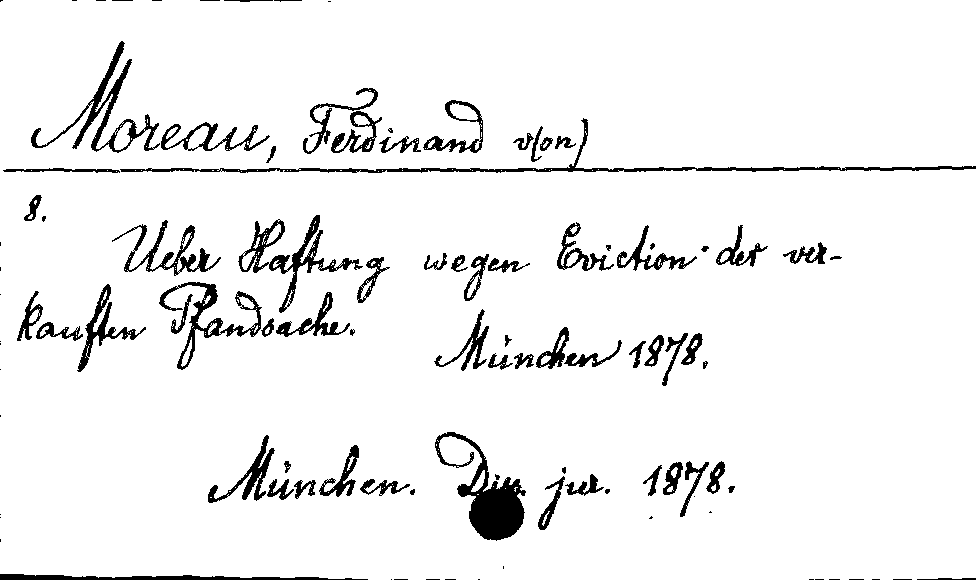 Moreau, Ferdinand v(on)
8.
Ueber Haftung wegen Eviction der ver-
kauften Pfandsache.
München 1878.
München. Diss. jur. 1878.